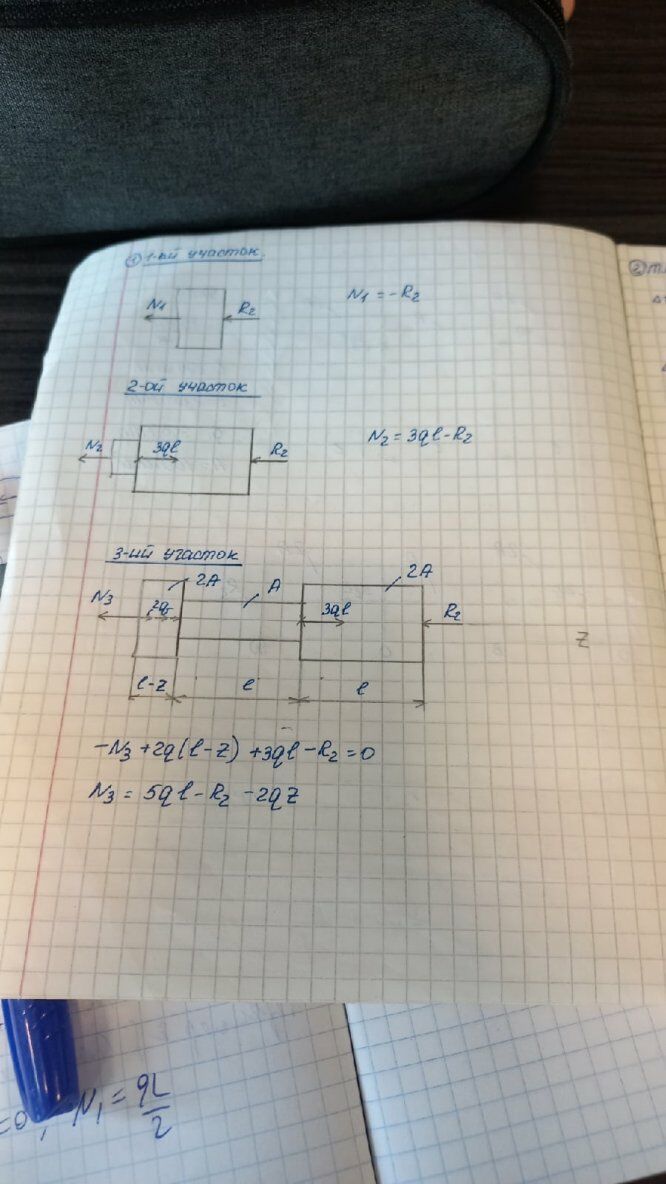 ① 1-ый участок
N₁
R₂
N₁ = -R₂
2-ой участок
N₂
3ql
R₂
N₂ = 3ql - R₂
3-ий участок
2A
A
2A
N₃
2q
3ql
R₂
z
l-z
l
l
-N₃ + 2q(l-z) + 3ql - R₂ = 0
N₃ = 5ql - R₂ - 2qz
②
=0, N₁ = qL/2